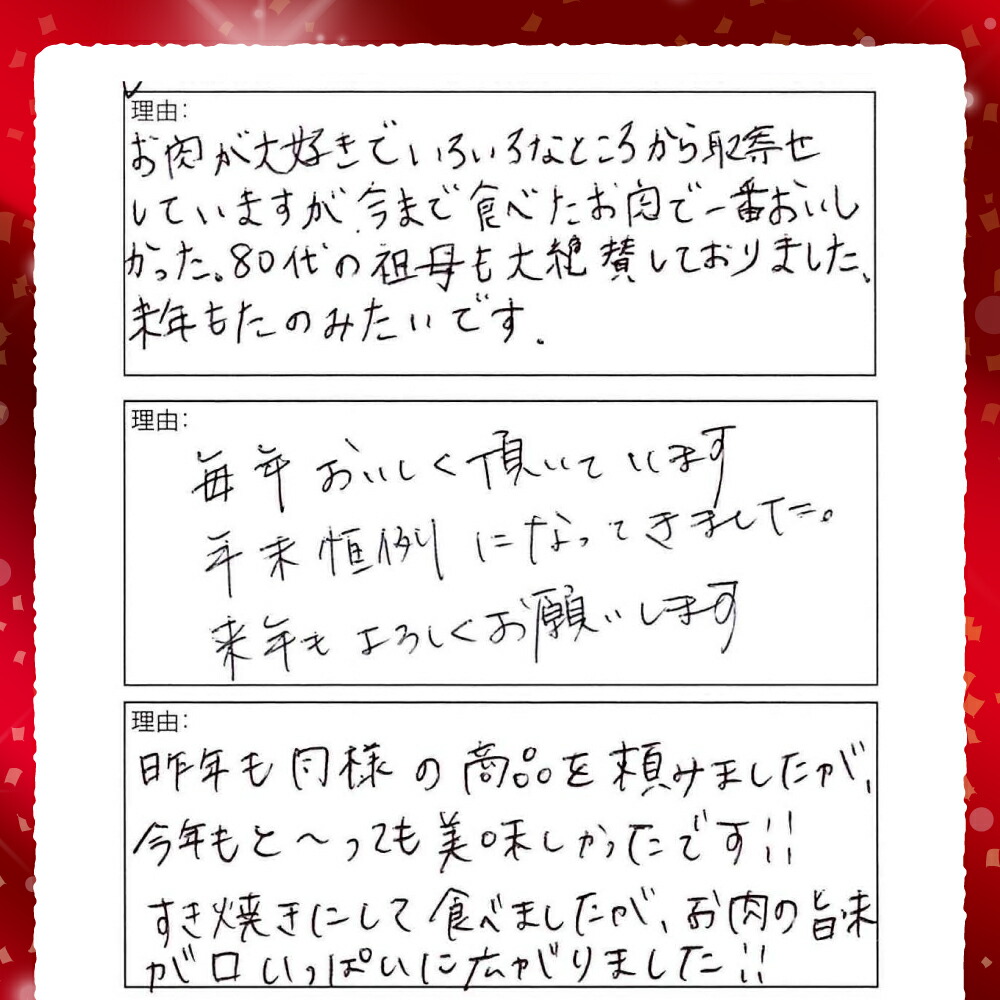 理由:
お肉が大好きでいろいろなところから取寄せ
していますが、今まで食べたお肉で一番おいし
かった。80代の祖母も大絶賛しておりました、
来年もたのみたいです.
理由:
毎年おいしく頂いています
年末恒例になってきました。
来年もよろしくお願いします
理由:
昨年も同様の商品を頼みましたが、
今年もと〜っても美味しかったです!!
すき焼きにして食べましたが、お肉の旨味
が口いっぱいに広がりました!!